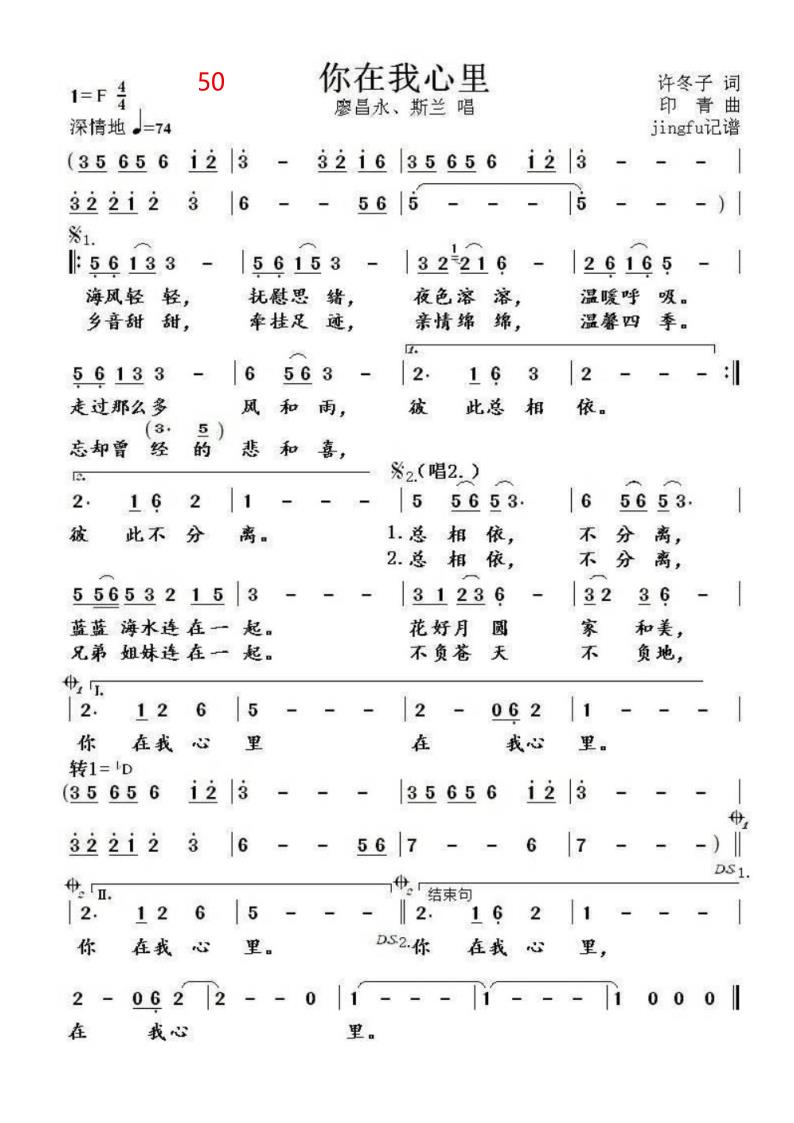 50
你在我心里
1=F 4/4
廖昌永、斯兰 唱
许冬子 词
印 青 曲
深情地 ♩=74
jingfu记谱
(3 5 6 5 6 1 2 | 3 - 3 2 1 6 | 3 5 6 5 6 1 2 | 3 - - - |
3 2 2 1 2 3 | 6 - - 5 6 | 5 - - - | 5 - - - ) |
𝄋1.
‖: 5 6 1 3 3 - | 5 6 1 5 3 - | 3 2 1 2 1 6 - | 2 6 1 6 5 - |
海风轻 轻, 抚慰思 绪, 夜色溶 溶, 温暖呼 吸。
乡音甜 甜, 牵挂足 迹, 亲情绵 绵, 温馨四 季。
1.
5 6 1 3 3 - | 6 5 6 3 - | 2· 1 6 3 | 2 - - :‖
走过那么多 风 和 雨, 彼 此总 相 依。
(3· 5)
忘却曾 经 的 悲 和 喜,
2.
𝄋2.(唱2.)
2· 1 6 2 | 1 - - - | 5 5 6 5 3· | 6 5 6 5 3· |
彼 此不 分 离。 1.总 相 依, 不 分 离,
2.总 相 依, 不 分 离,
5 5 6 5 3 2 1 5 | 3 - - - | 3 1 2 3 6 - | 3 2 3 6 - |
蓝蓝 海水连 在 一 起。 花好月 圆 家 和美,
兄弟 姐妹连 在 一 起。 不负苍 天 不 负地,
𝄌1 I.
| 2· 1 2 6 | 5 - - - | 2 - 0 6 2 | 1 - - - |
你 在我 心 里 在 我心 里。
转1=♭D
(3 5 6 5 6 1 2 | 3 - - - | 3 5 6 5 6 1 2 | 3 - - - |
𝄌1
3 2 2 1 2 3 | 6 - - 5 6 | 7 - - 6 | 7 - - - ) ‖
D.S.1.
𝄌2 II. 𝄌2 结束句
| 2· 1 2 6 | 5 - - - ‖ 2· 1 6 2 | 1 - - - |
你 在我 心 里。 D.S.2. 你 在我 心 里,
2 - 0 6 2 | 2 - - 0 | 1 - - - | 1 - - - | 1 0 0 0 ‖
在 我心 里。